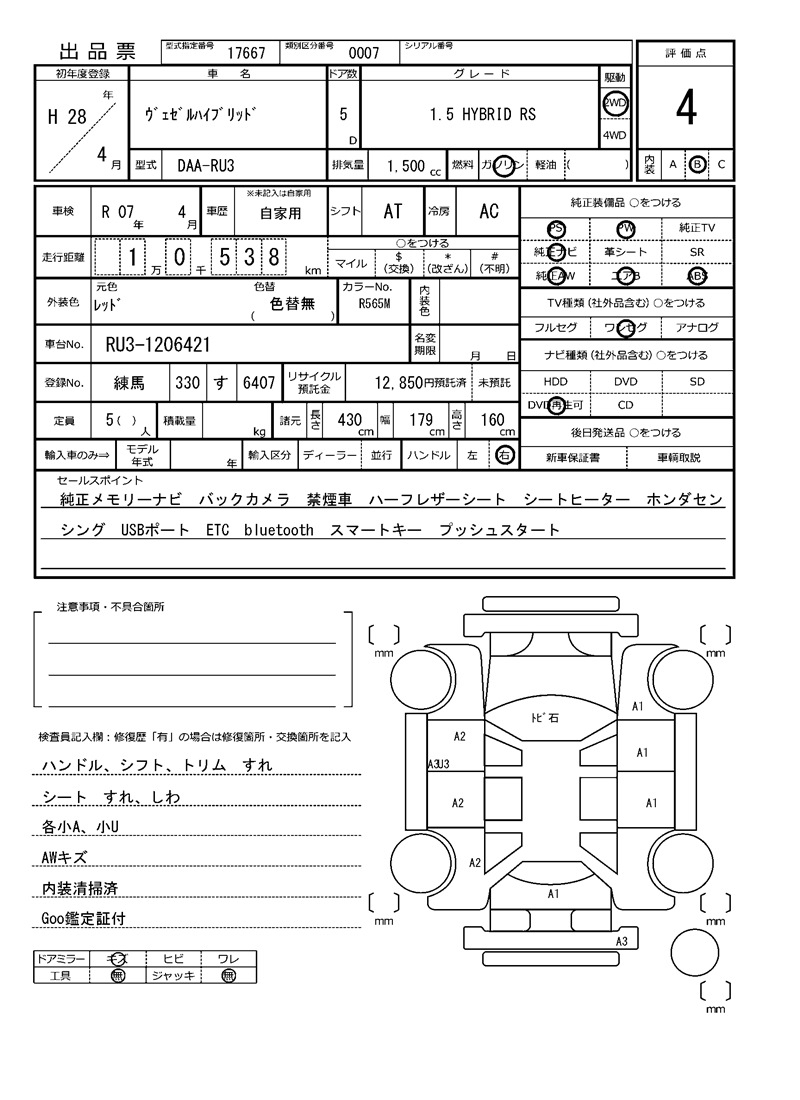 出品票
型式指定番号 17667 類別区分番号 0007 シリアル番号
評価点
4
内装 A B C
初年度登録 車名 ドア数 グレード 駆動
H 28 年 4 月
ヴェゼルハイブリッド
5 D
1.5 HYBRID RS
2WD
4WD
型式 DAA-RU3 排気量 1,500 cc 燃料 ガソリン 軽油 ( )
車検 R 07 年 4 月 車歴 ※未記入は自家用 自家用 シフト AT 冷房 AC
走行距離 1 万 0 千 5 3 8 km
○をつける
マイル $(交換) *(改ざん) #(不明)
外装色 元色 レッド 色替 ( 色替無 ) カラーNo. R565M 内装色
車台No. RU3-1206421 名変期限 月 日
登録No. 練馬 330 す 6407 リサイクル預託金 12,850円預託済 未預託
定員 5 ( ) 人 積載量 kg 諸元 長さ 430 cm 幅 179 cm 高さ 160 cm
輸入車のみ⇒ モデル年式 年 輸入区分 ディーラー 並行 ハンドル 左 右
純正装備品 ○をつける
PS PW 純正TV
純正ナビ 革シート SR
純正AW エアB ABS
TV種類(社外品含む) ○をつける
フルセグ ワンセグ アナログ
ナビ種類(社外品含む) ○をつける
HDD DVD SD
DVD再生可 CD
後日発送品 ○をつける
新車保証書 車輌取説
セールスポイント
純正メモリーナビ バックカメラ 禁煙車 ハーフレザーシート シートヒーター ホンダセン
シング USBポート ETC bluetooth スマートキー プッシュスタート
注意事項・不具合箇所
検査員記入欄:修復歴「有」の場合は修復箇所・交換箇所を記入
ハンドル、シフト、トリム すれ
シート すれ、しわ
各小A、小U
AWキズ
内装清掃済
Goo鑑定証付
ドアミラー キズ ヒビ ワレ
工具 無 ジャッキ 無
mm
mm
A1
トビ石
A2
A1
A3U3
A2
A1
A2
A1
mm
mm
A3
mm